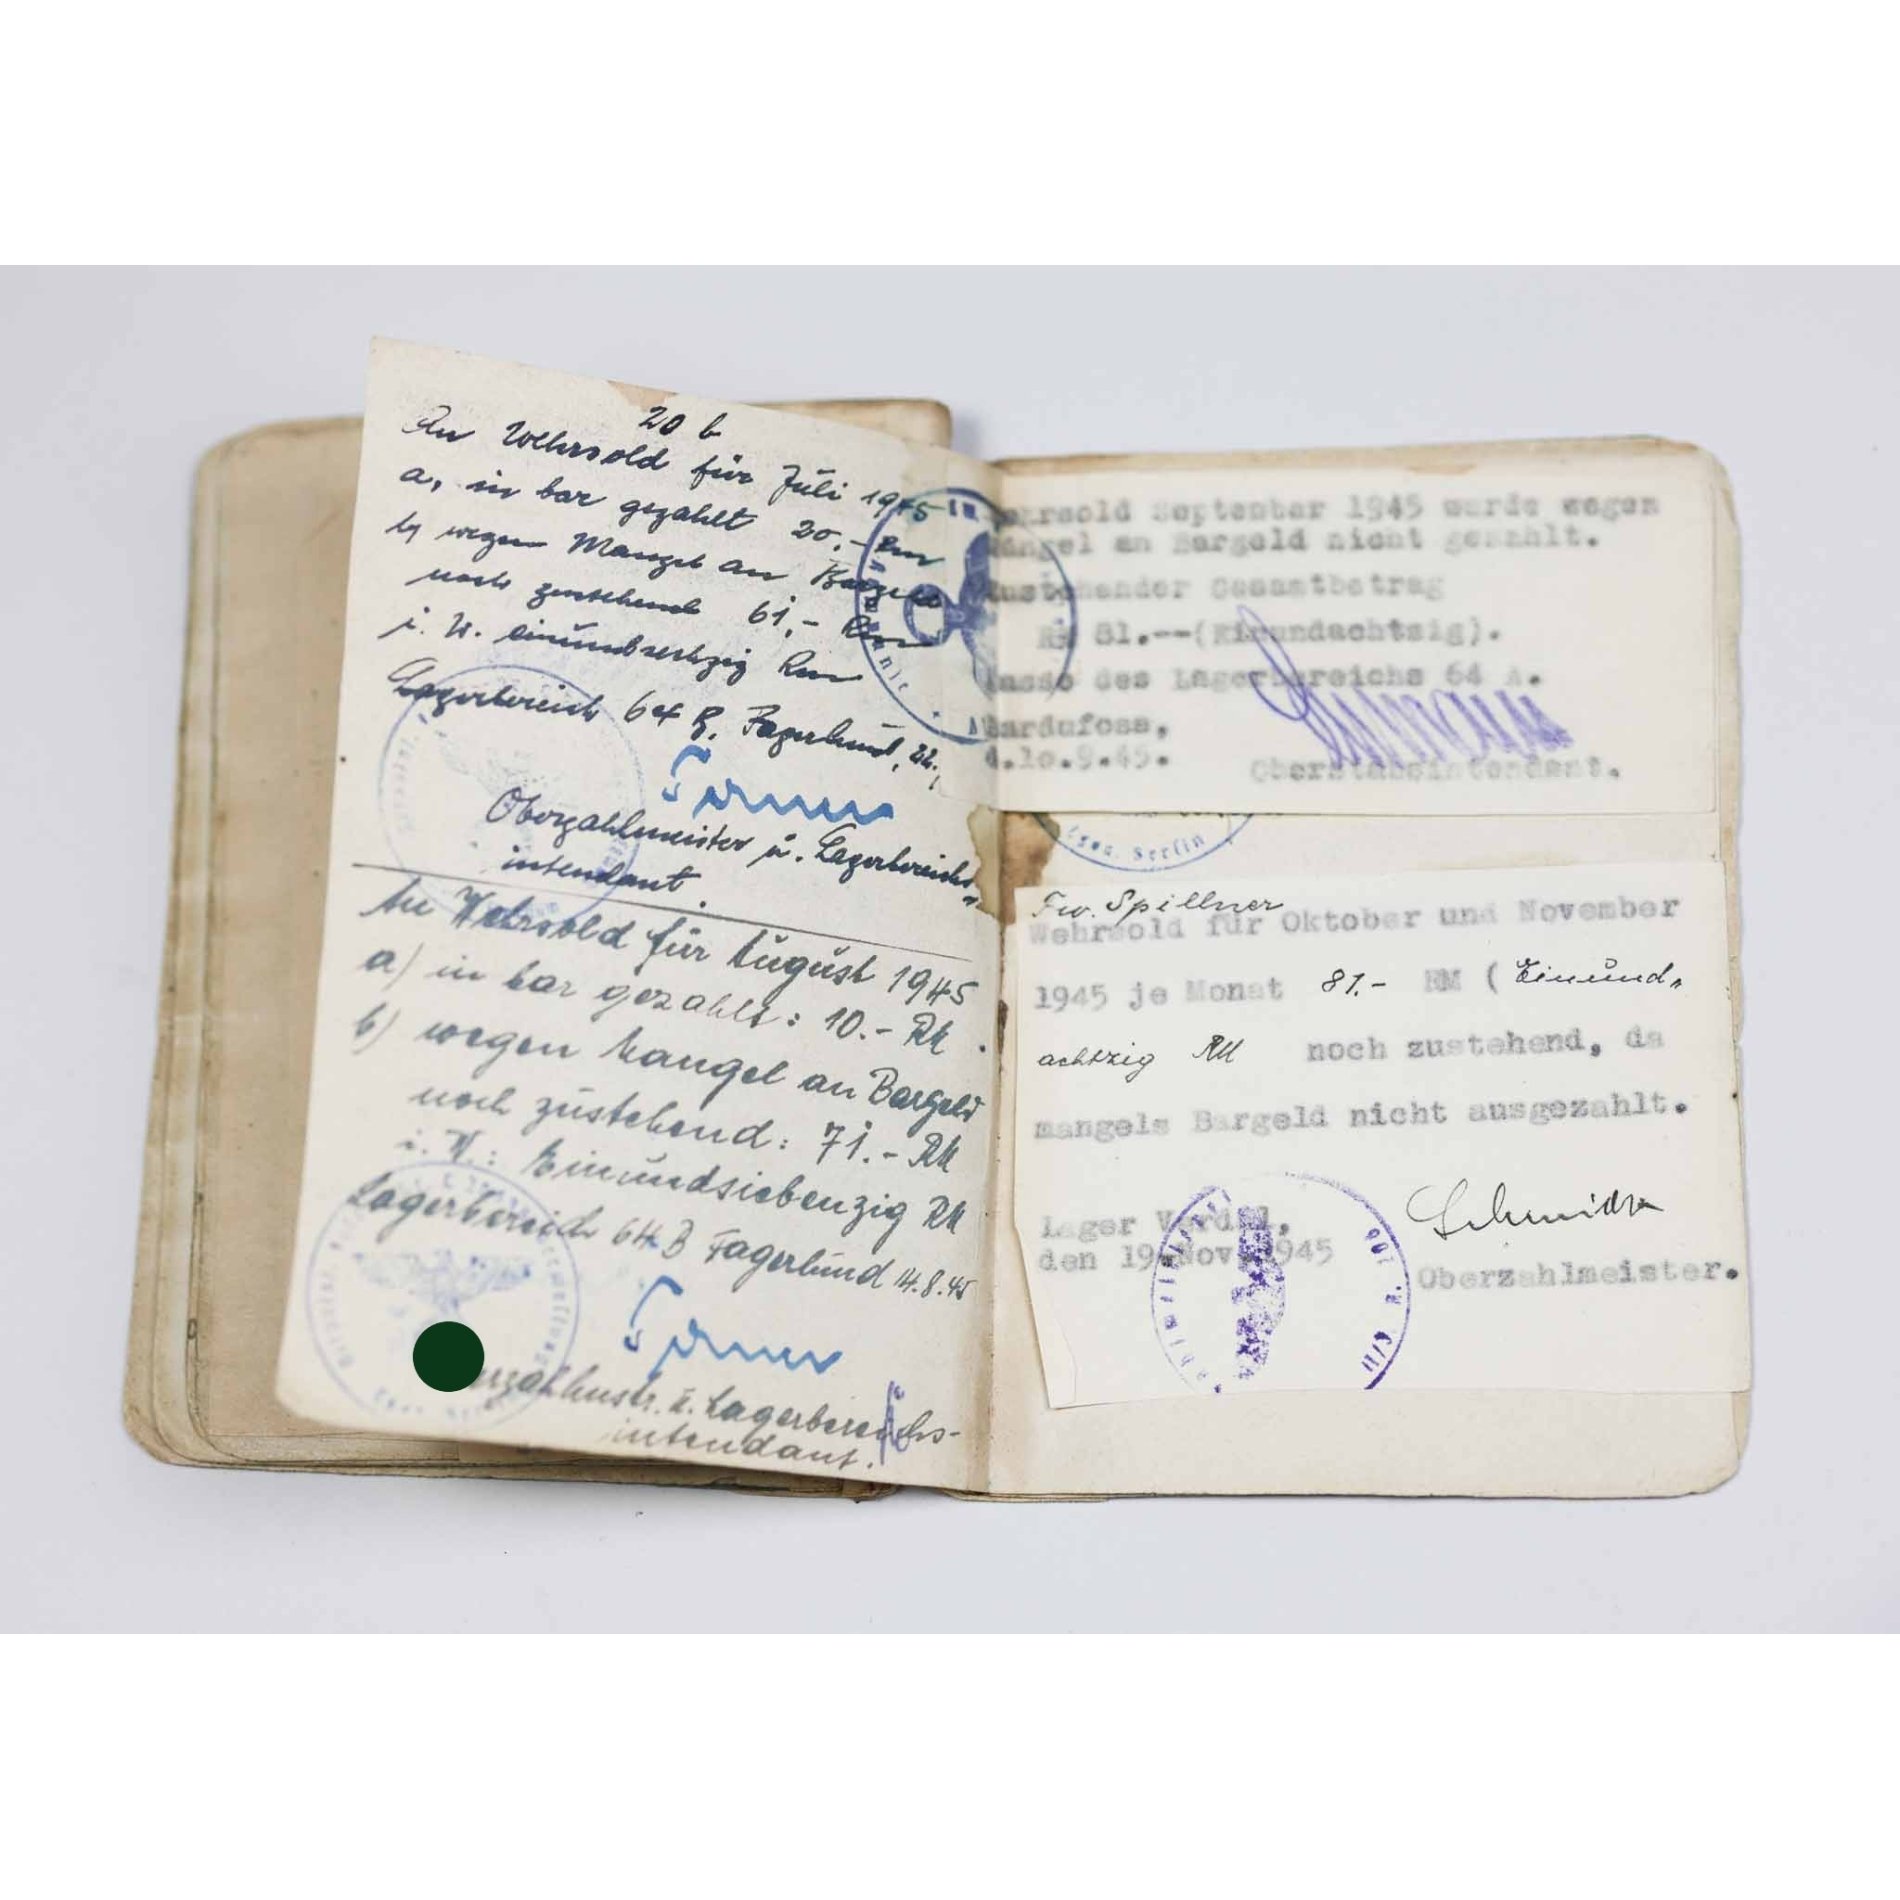 20 b
An Wehrsold für Juli 1945
a, in bar gezahlt 20,- Rm
b, wegen Mangels an Bargeld
noch zustehend 61,- Rm
i. W. einundsechzig Rm
Lagerbereich 64 B. Fagerlund, 22.,
Oberzahlmeister u. Lagerbereichs-
intendant.
An Wehrsold für August 1945
a) in bar gezahlt: 10.- RM.
b) wegen Mangel an Bargeld
noch zustehend: 71.- RM
i. W.: Einundsiebenzig RM
Lagerbereich 64 B Fagerlund 14.8.45
zahlmstr. u. Lagerbereichs-
intendant.
ehrsold September 1945 wurde wegen
angel an Bargeld nicht gezahlt.
ustehender Gesamtbetrag
RM 81.--(Einundachtzig).
asse des Lagerbereichs 64 A.
ardufoss,
d.10.9.45.
Oberstabsintendant.
Berlin
Fw. Spillner
Wehrsold für Oktober und November
1945 je Monat 81.- RM (Einund-
achtzig RM noch zustehend, da
mangels Bargeld nicht ausgezahlt.
Lager
den 19.Nov.1945
Schmidt
Oberzahlmeister.